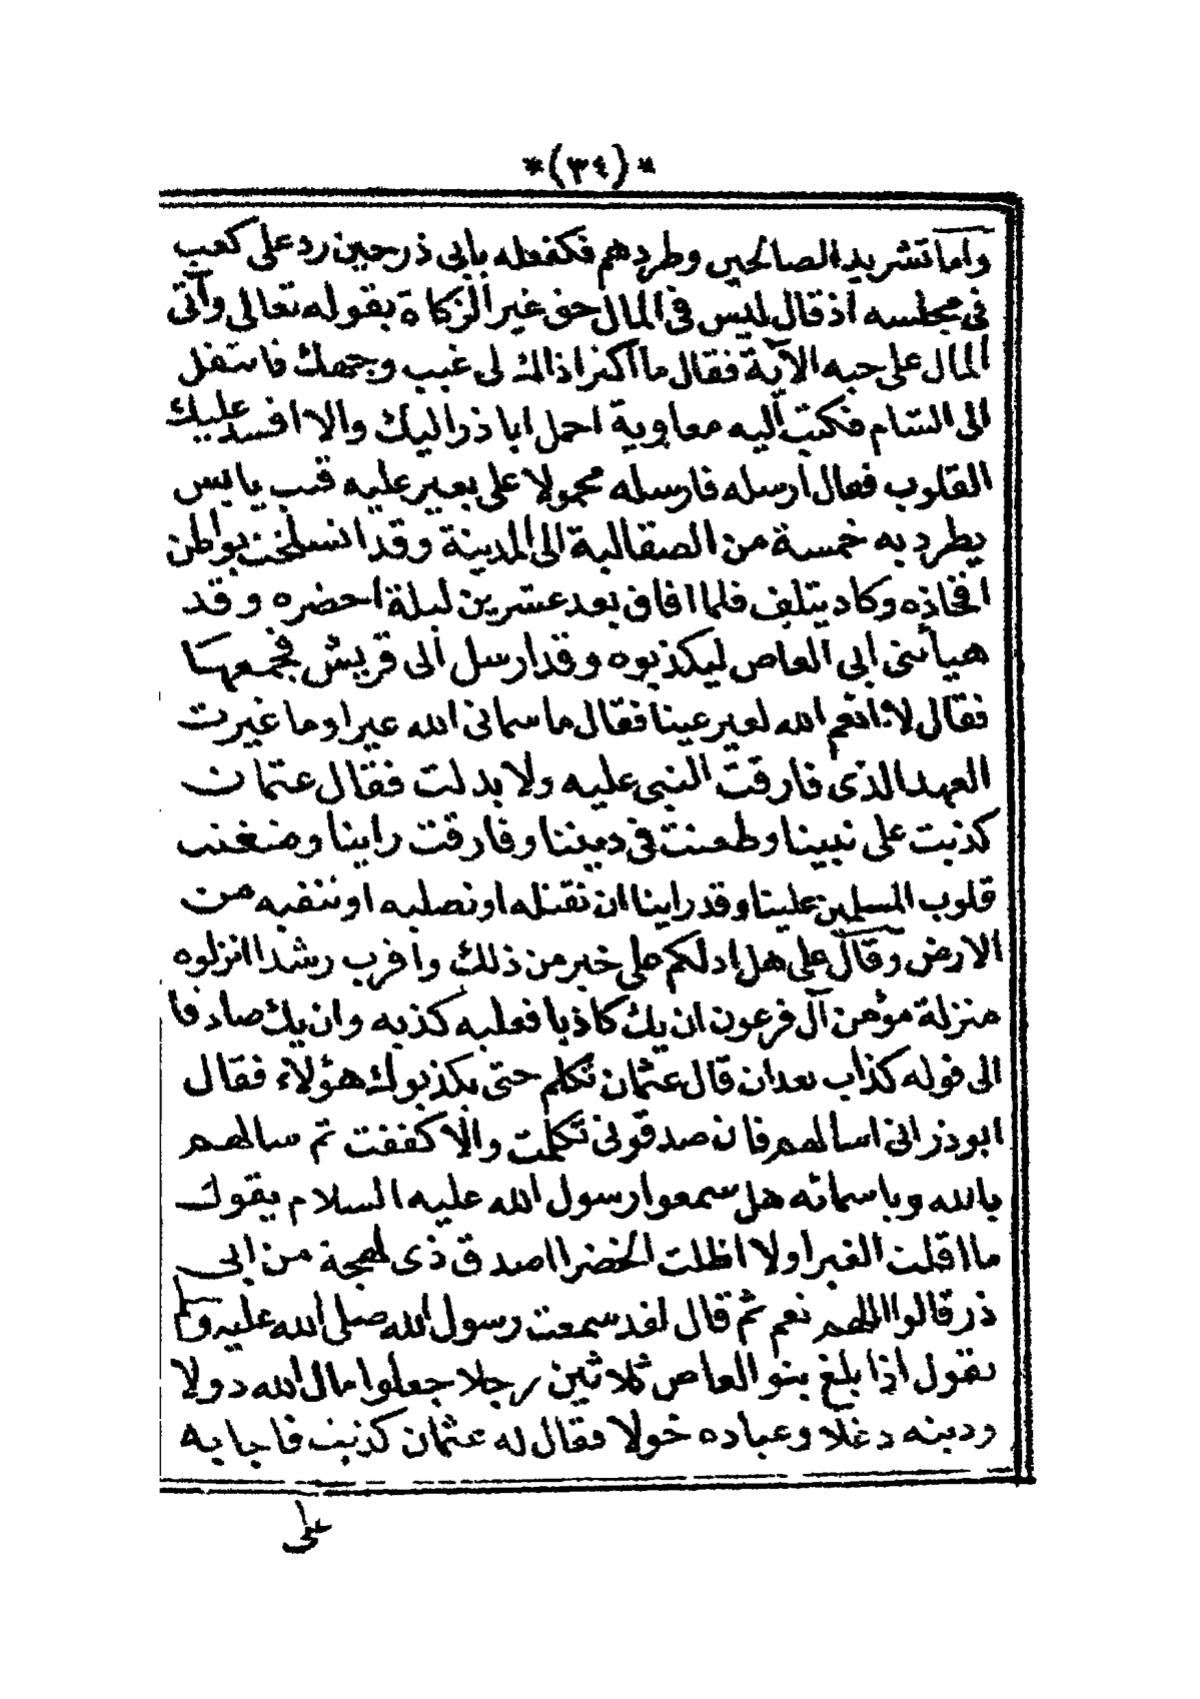 *(٣٤)*
واما تشريد الصالحين وطردهم فكفعله بابى ذر حين رد على كعب
فى مجلسه اذ قال ليس فى المال حق غير الزكاة بقوله تعالى وآتى
المال على حبه الآية فقال ما اكثر اذالك لى غيب وجهك فانتقل
الى الشام فكتب اليه معاوية احمل ابا ذر اليك والا افسد عليك
القلوب فقال ارسله فارسله محمولا على بعير عليه قتب يابس
يطرد به خمسة من الصقالبة الى المدينة وقد انسلخت بواطن
افخاذه وكاد يتلف فلما افاق بعد عشرين ليلة احضره وقد
هيأ بنى ابى العاص ليكذبوه وقد ارسل الى قريش فجمعها
فقال لا انعم الله لعير عينا فقال ما سمانى الله عيرا وما غيرت
العهد الذى فارقت النبى عليه ولا بدلت فقال عثمان
كذبت على نبينا وطعنت فى ديننا وفارقت راينا وضغنت
قلوب المسلمين علينا وقد راينا ان نقتله او نصلبه او ننفيه من
الارض وقال على هل ادلكم على خير من ذلك واقرب رشدا انزلوه
منزلة مؤمن آل فرعون ان يك كاذبا فعليه كذبه وان يك صادقا
الى قوله كذاب بعد ان قال عثمان تكلم حتى يكذبوك هؤلاء فقال
ابوذر انى اسالهم فان صدقونى تكلمت والا كففت ثم سالهم
بالله وباسمائه هل سمعوا رسول الله عليه السلام يقول
ما اقلت الغبرا ولا اظلت الخضرا اصدق ذى لهجة من ابى
ذر قالوا اللهم نعم ثم قال لقد سمعت رسول الله صلى الله عليه وسلم
يقول اذا بلغ بنو العاص ثلاثين رجلا جعلوا مال الله دولا
ودينه دغلا وعباده خولا فقال له عثمان كذبت فاجابه
على